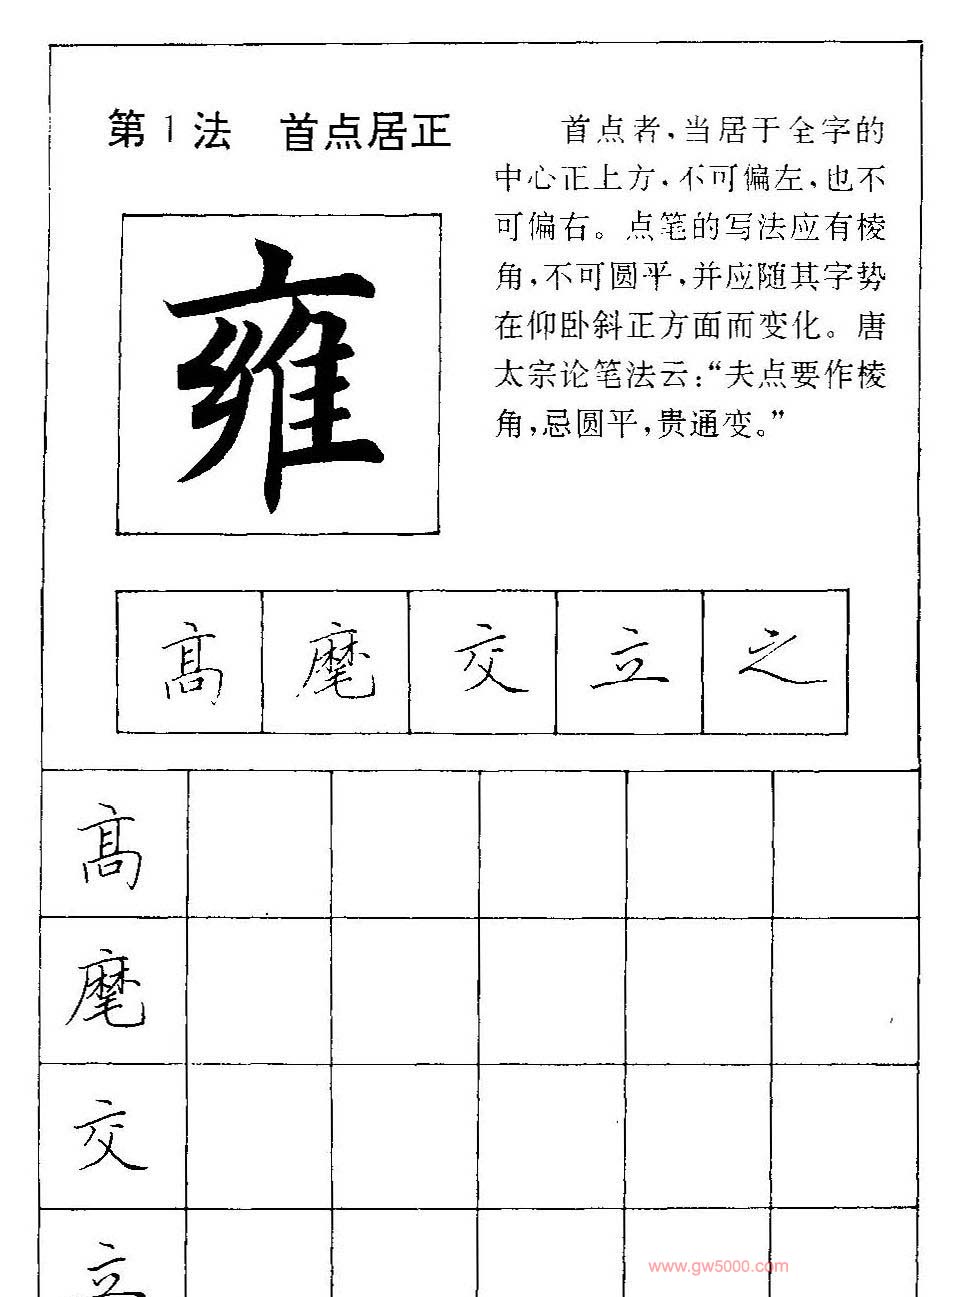 第1法 首点居正
首点者，当居于全字的
中心正上方，不可偏左，也不
可偏右。点笔的写法应有棱
角，不可圆平，并应随其字势
在仰卧斜正方面而变化。唐
太宗论笔法云：“夫点要作棱
角，忌圆平，贵通变。”
雍
髙 麾 交 立 之
髙
麾
交
立
www.gw5000.com